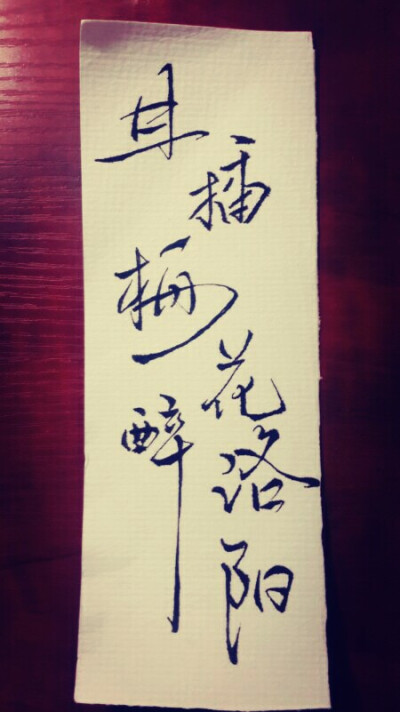 且插梅花醉洛阳